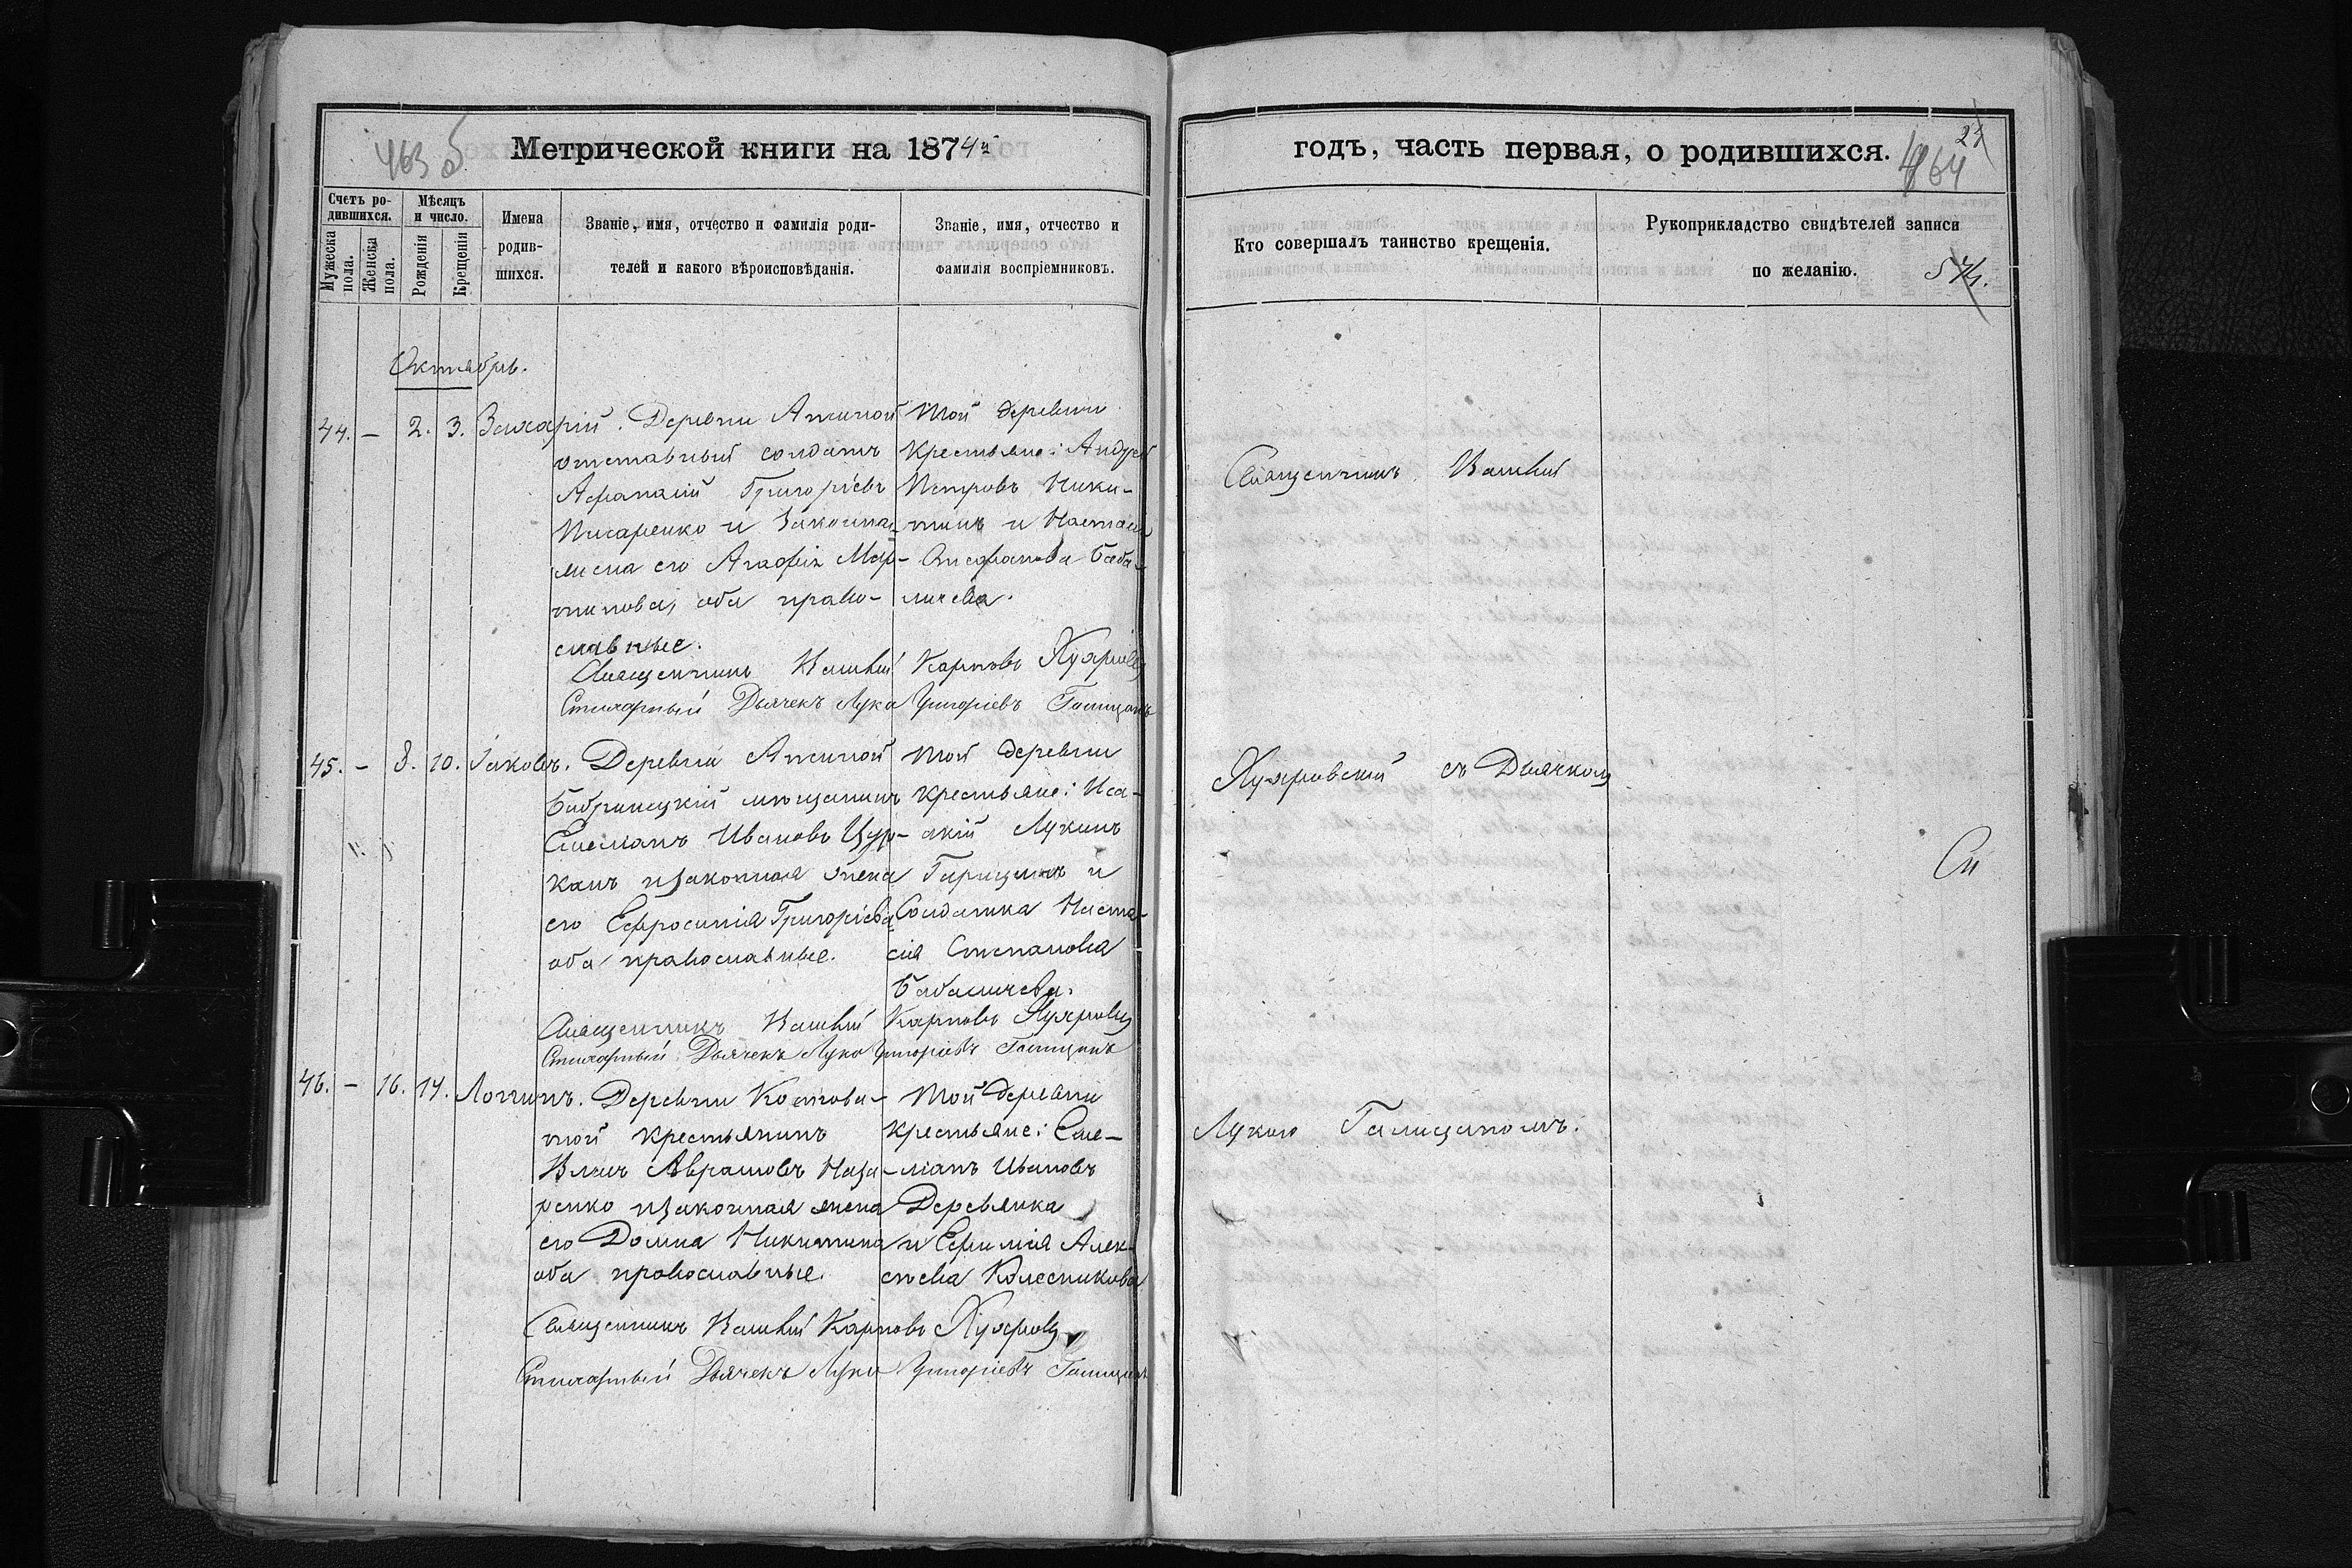 463 об
Метрической книги на 1874й
Счетъ ро-
дившихся.
Мужеска
пола.
Женска
пола.
Мѣсяцъ
и число.
Рожденія
Крещенія
Имена
родив-
шихся.
Званіе, имя, отчество и фамилія роди-
телей и какого вѣроисповѣданія.
Званіе, имя, отчество и
фамилія воспріемниковъ.
Октябрь.
44. – 2. 3. Захарій. Деревни
отставный солдатъ
Афанасій Григорієвъ
Писаренко и законная
жена его Агафія Мар-
тинова, оба право-
славные.
Той деревни
крестьяне: Андрей
Петровъ Ники-
тинъ и
Баба-
личева.
Священникъ Василій Карповъ
Стихарный Дьячекъ Лука Григоріевъ Галицанъ
45. – 8. 10. Іаковъ. Деревни
Бобринецкій мѣщанинъ
Емеліанъ Ивановъ Цур-
канъ и законная жена
его Ефросинія Григоріева
оба православные.
Той деревни
крестьяне: Иса-
акій Лукинъ
и
Солдатка Наста-
сія Степанова
Бабаличева.
Священникъ Василій Карповъ
Стихарный Дьячекъ Лука Григоріевъ Галицанъ
46. – 16. 17. Логгинъ. Деревни Коштова-
той крестьянинъ
Аврамовъ Наза-
ренко и законная жена
его Домна Никитина
оба православные.
Той деревни
крестьяне: Еме-
ліанъ Ивановъ
Деревянка
и Ефимія Алек-
сѣева Колесникова
Священникъ Василій Карповъ
Стихарный Дьячекъ Лука Григоріевъ Галицанъ
годъ, часть первая, о родившихся.
464
Кто совершалъ таинство крещенія.
Рукоприкладство свидѣтелей записи
по желанію.
Священникъ Василій
съ Дьячкомъ
Лукою Галицаномъ.